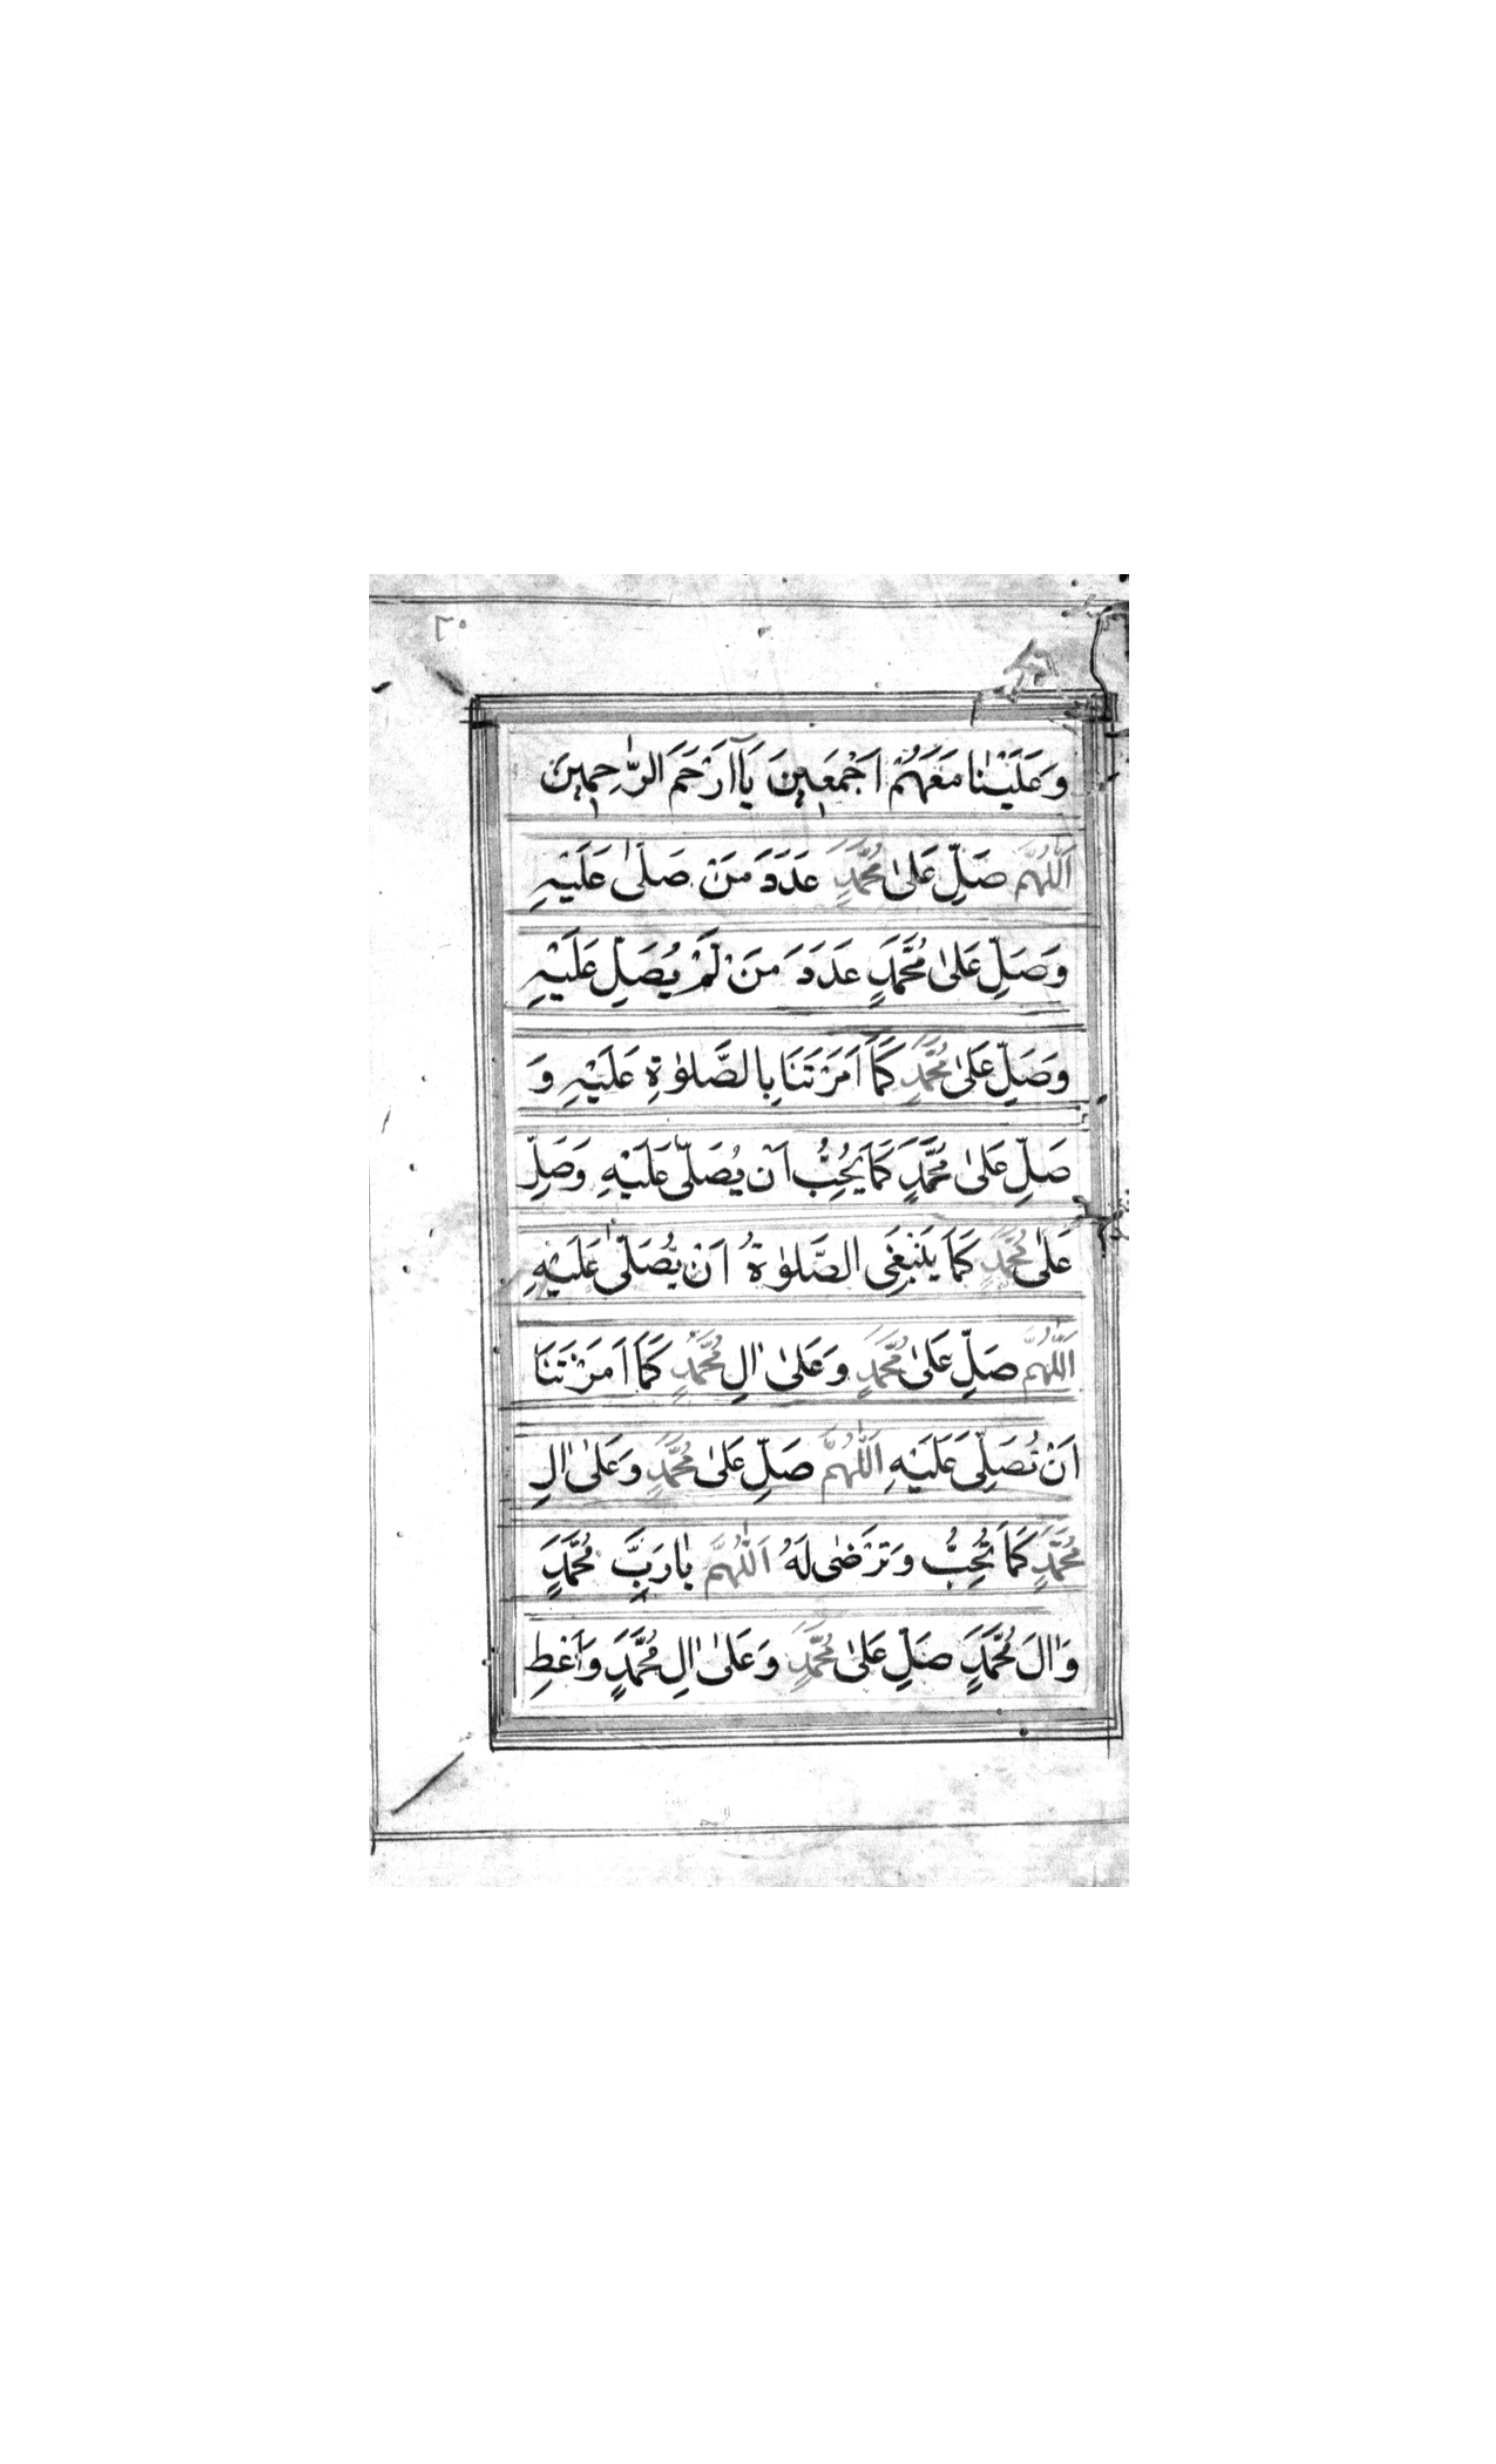 وَعَلَيْنَا مَعَهُمْ اَجْمَعِينَ يَآاَرْحَمَ الرّٰحِمِينَ
اَللّٰهُمَّ صَلِّ عَلىٰ مُحَمَّدٍ عَدَدَ مَنْ صَلّٰى عَلَيْهِ
وَصَلِّ عَلىٰ مُحَمَّدٍ عَدَدَ مَنْ لَمْ يُصَلِّ عَلَيْهِ
وَصَلِّ عَلىٰ مُحَمَّدٍ كَمَا اَمَرْتَنَا بِالصَّلٰوةِ عَلَيْهِ وَ
صَلِّ عَلىٰ مُحَمَّدٍ كَمَا يُحِبُّ اَنْ يُصَلّٰى عَلَيْهِ وَصَلِّ
عَلىٰ مُحَمَّدٍ كَمَا يَنْبَغِى الصَّلٰوةُ اَنْ يُصَلّٰى عَلَيْهِ
اَللّٰهُمَّ صَلِّ عَلىٰ مُحَمَّدٍ وَعَلىٰ اٰلِ مُحَمَّدٍ كَمَا اَمَرْتَنَا
اَنْ نُصَلِّىَ عَلَيْهِ اَللّٰهُمَّ صَلِّ عَلىٰ مُحَمَّدٍ وَعَلىٰ اٰلِ
مُحَمَّدٍ كَمَا تُحِبُّ وَتَرْضٰى لَهُ اَللّٰهُمَّ يٰارَبَّ مُحَمَّدٍ
وَاٰلَ مُحَمَّدٍ صَلِّ عَلىٰ مُحَمَّدٍ وَعَلىٰ اٰلِ مُحَمَّدٍ وَاَعْطِ